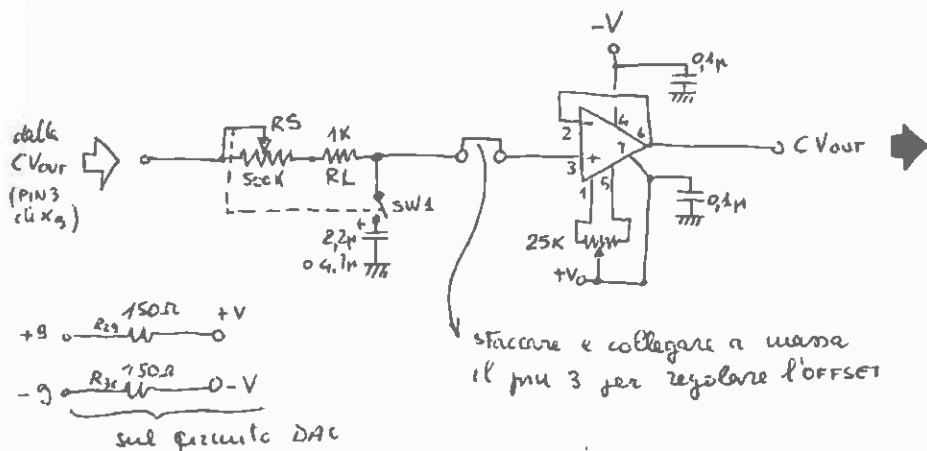 -V
0,1µ
dalla
CVOUT
(PIN 3
di X9)
RS
500K
1K
RL
SW1
+
2,2µ
o 4,7µ
2
-
4
6
3
+
7
1
5
CVOUT
0,1µ
25K
+V
+9
R29
150Ω
+V
-9
150Ω
-V
sul circuito DAC
staccare e collegare a massa
il pin 3 per regolare l'OFFSET